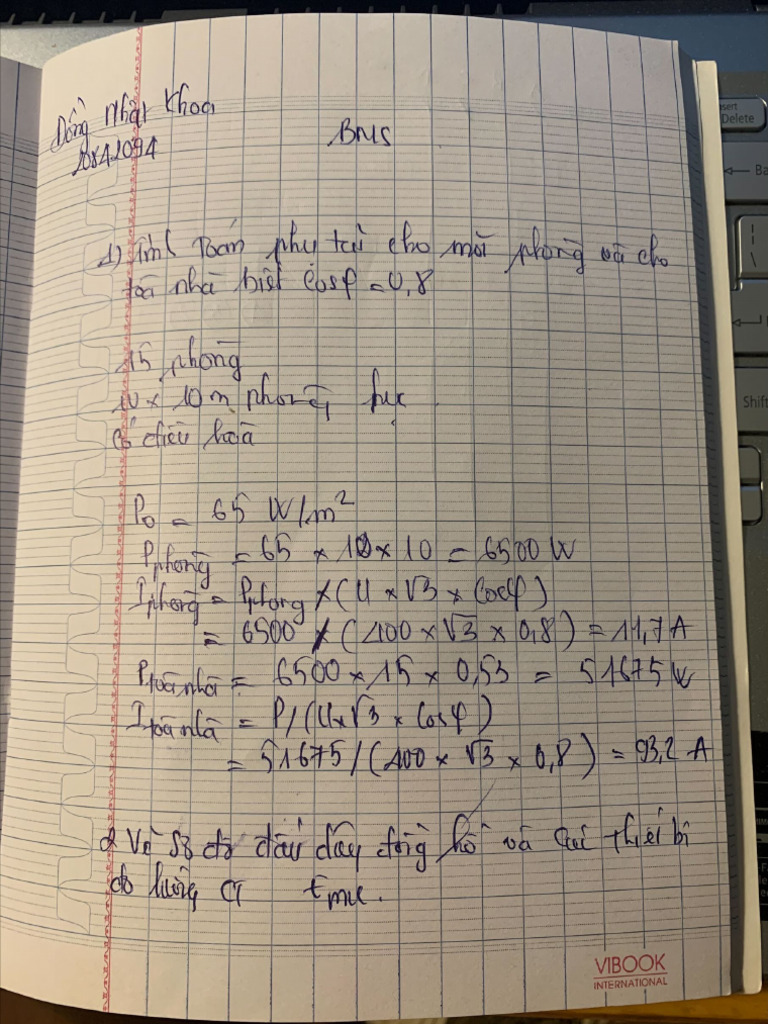 Đồng Nhật Khoa
20842094
BMS
1) Tính toán phụ tải cho mỗi phòng và cho
toà nhà biết cosφ = 0,8
15 phòng
10 x 10 m phòng học
Có điều hoà
P₀ = 65 W/m²
P phòng = 65 x 10 x 10 = 6500 W
I phòng = P phòng / (U x √3 x cosφ)
= 6500 / (400 x √3 x 0,8) = 11,7 A
P toà nhà = 6500 x 15 x 0,53 = 51675 W
I toà nhà = P / (U x √3 x cosφ)
= 51675 / (400 x √3 x 0,8) = 93,2 A
2 Vẽ sơ đồ đấu dây đồng hồ và các thiết bị
đo lường CT
insert
Delete
Ba
Shift
VIBOOK
INTERNATIONAL